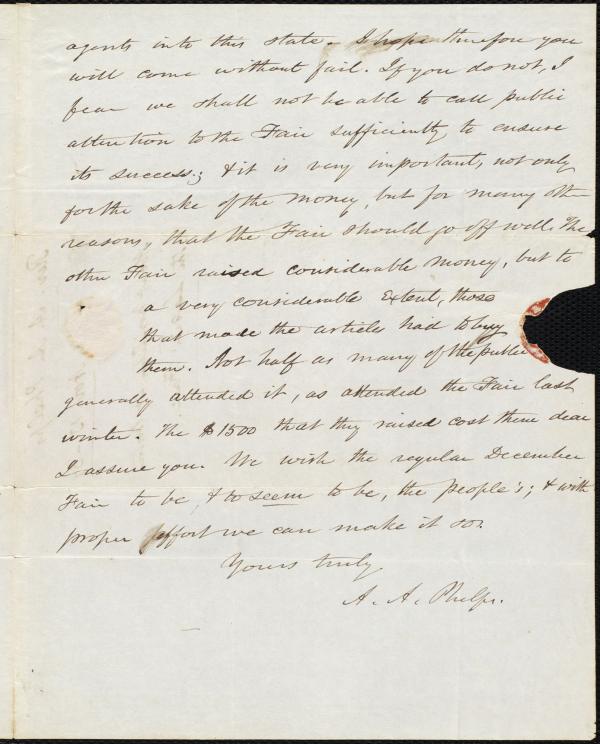 agents into this state. I hope therefore you
will come without fail. If you do not, I
fear we shall not be able to call public
attention to the Fair sufficiently to ensure
its success; & it is very important, not only
for the sake of the money, but for many other
reasons, that the Fair should go off well. The
other Fair raised considerable money, but to
a very considerable extent, those
that made the articles had to buy
them. Not half as many of the public
generally attended it, as attended the Fair last
winter. The $1500 that they raised cost them dear
I assure you. We wish the regular December
Fair to be, & to seem to be, the people's; & with
proper effort we can make it so.
Yours truly
A. A. Phelps.